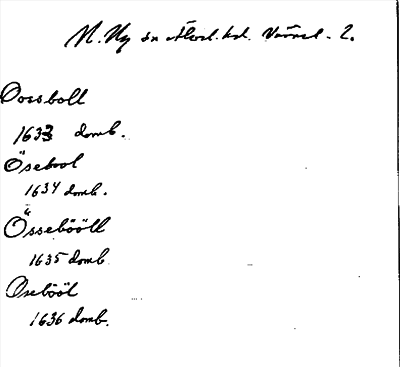 N. Ny sn Älvd. hd. Värml. 2.
Oossboll
1633 domb.
Ösebool
1634 domb.
Össebööll
1635 domb
Oseböòl
1636 domb.